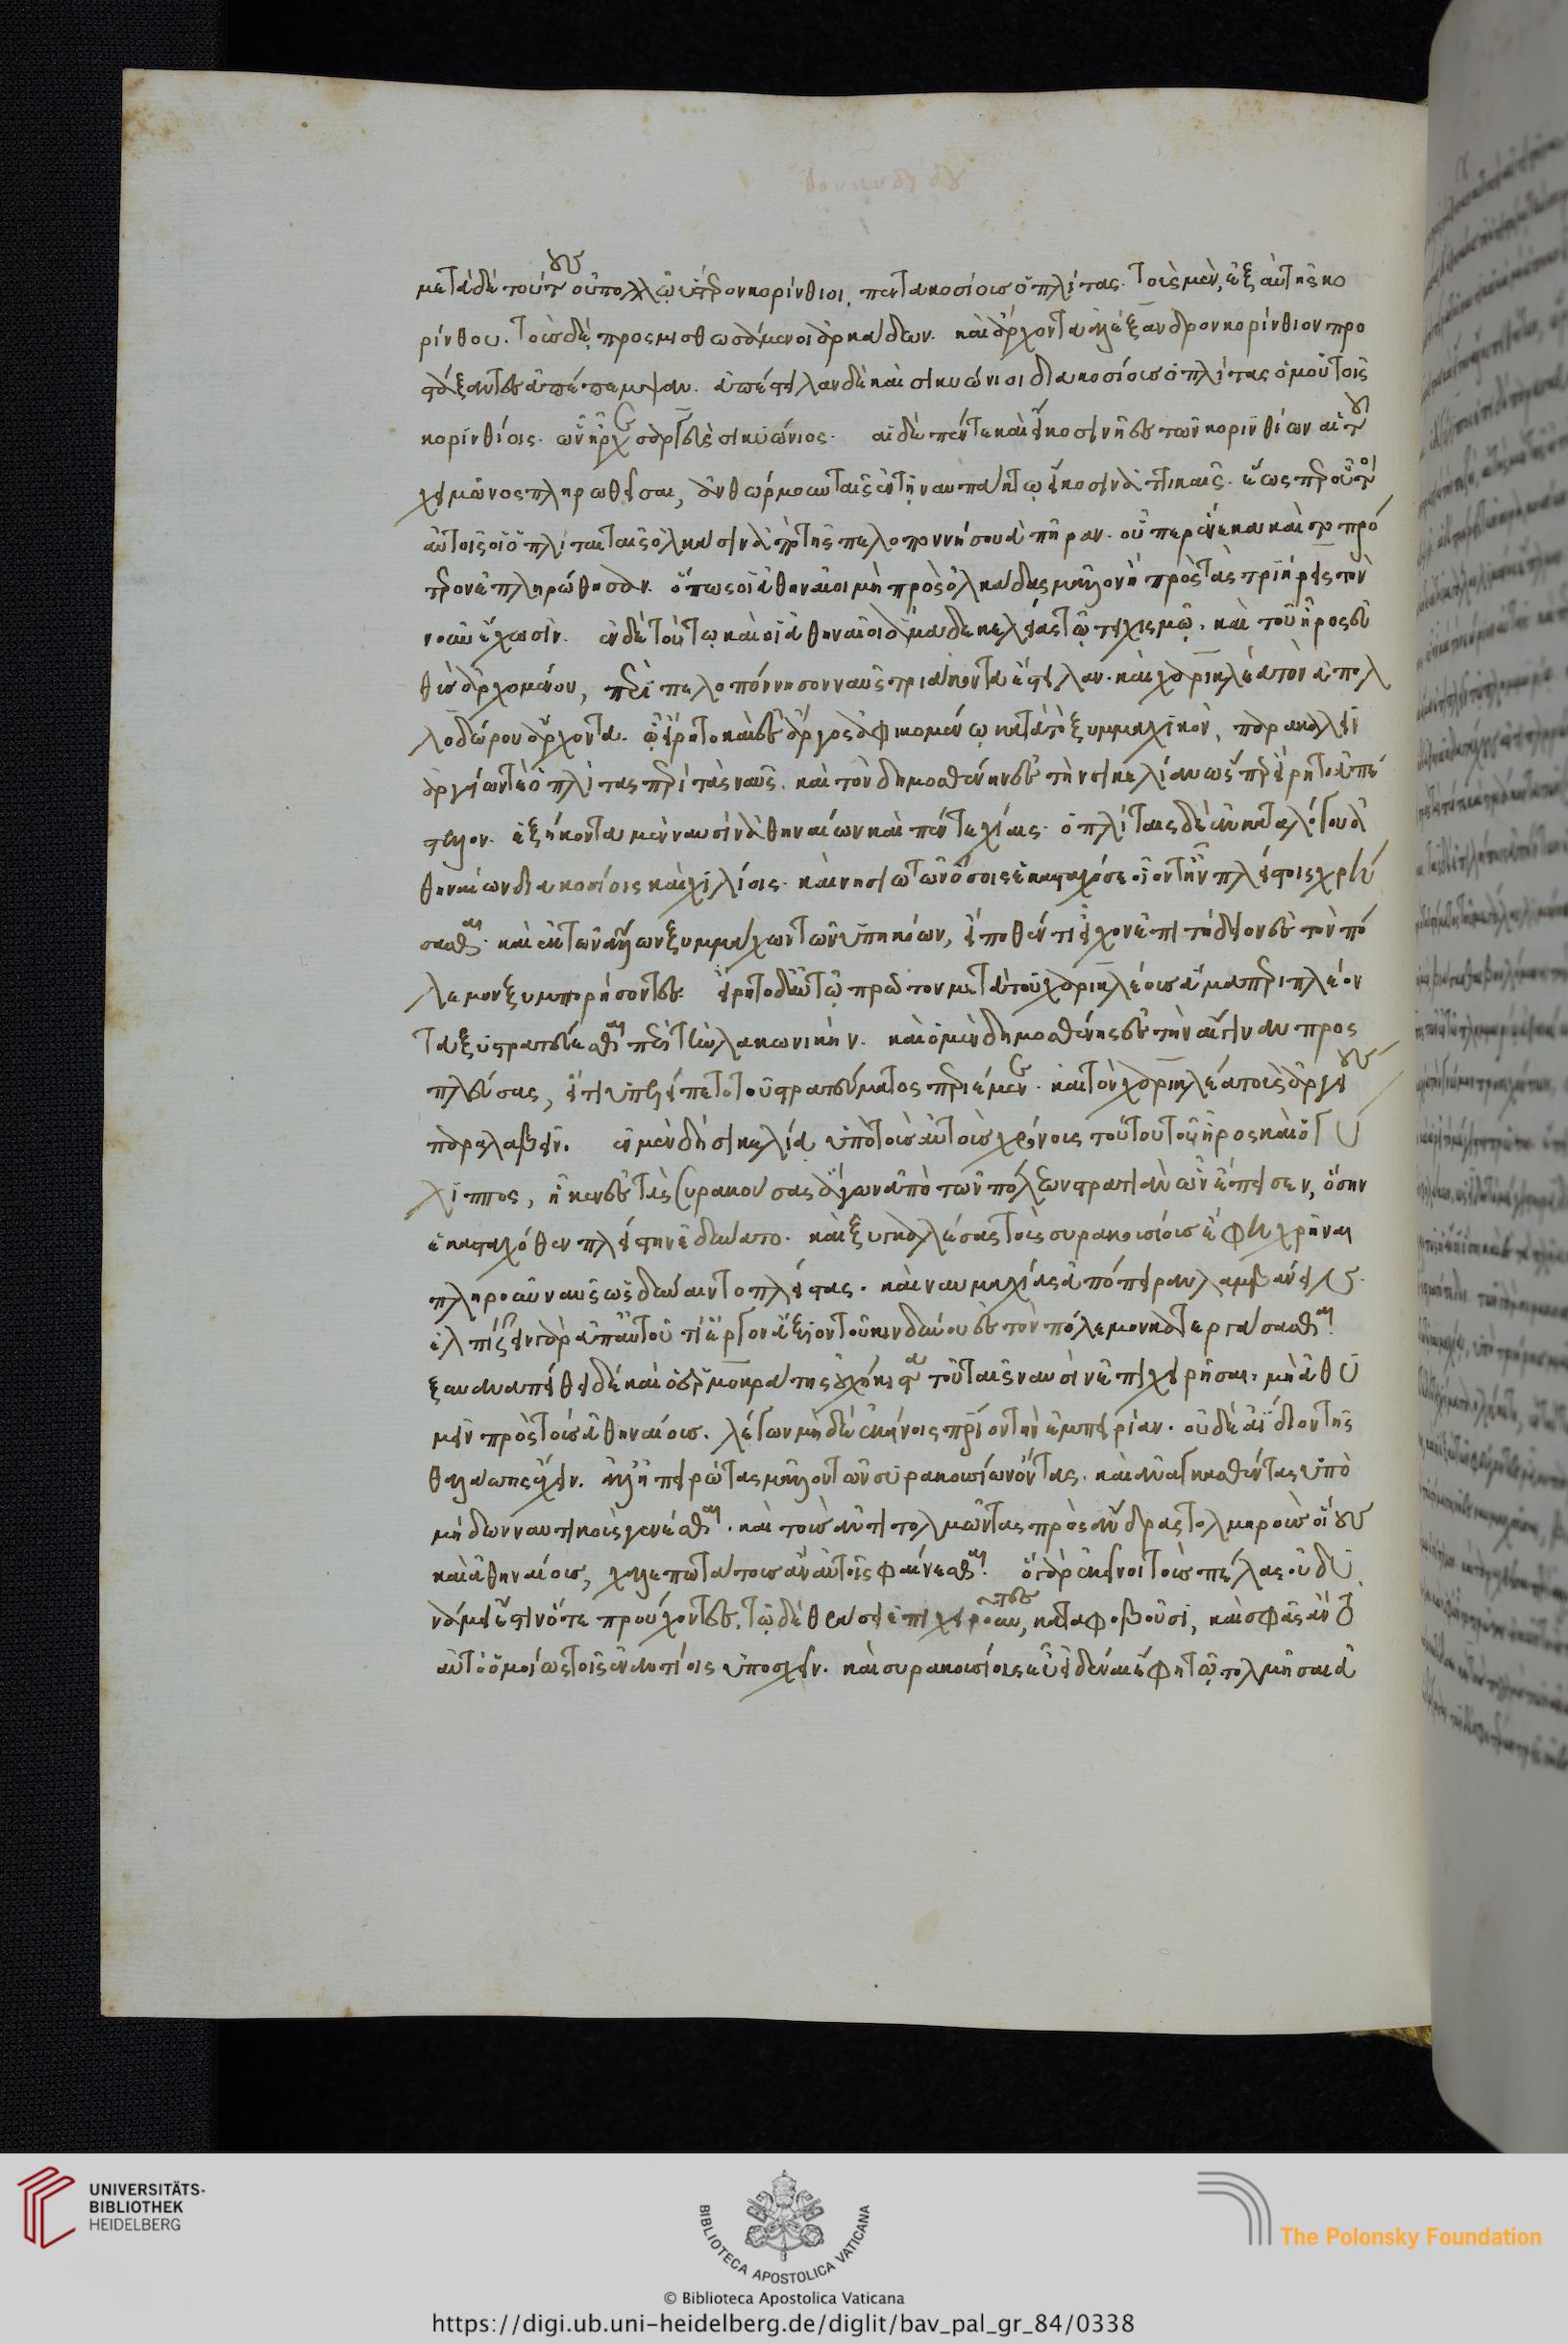 μετὰ δὲ τούτους οὐ πολλῷ ὕστερον κορίνθιοι, πεντακοσίους ὁπλίτας. τοὺς μὲν, ἐξ αὐτῆς κο
ρίνθου. τοὺς δὲ, προσμισθωσάμενοι ἀρκάδων. καὶ ἄρχοντα ἀλέξανδρον κορίνθιον προ
στάξαντες ἀπέπεμψαν. ἀπέστειλαν δὲ καὶ σικυώνιοι διακοσίους ὁπλίτας ὁμοῦ τοῖς
κορινθίοις. ὧν ἦρχε σαργεὺς σικυώνιος. αἱ δὲ πέντε καὶ εἴκοσιν νῆες τῶν κορινθίων αἱ τοῦ
χειμῶνος πληρωθεῖσαι, ἀνθώρμουν ταῖς ἐν τῇ ναυπάκτῳ εἴκοσιν ἀττικαῖς. ἕωσπερ οὗτοι
αὐτοῖς οἱ ὁπλῖται ταῖς ὁλκάσιν ἀπὸ τῆς πελοποννήσου ἀπῆραν. οὗπερ ἕνεκα καὶ τὸ πρό
τερον ἐπληρώθησαν. ὅπως οἱ ἀθηναῖοι μὴ πρὸς ὁλκάδας μᾶλλον ἢ πρὸς τὰς τριήρεις τὸν
νοῦν ἔχωσιν. ἐν δὲ τούτῳ καὶ οἱ ἀθηναῖοι ἅμα δεκελείας τῷ τειχισμῷ. καὶ τοῦ ἦρος εὐ
θὺς ἀρχομένου, περὶ πελοπόννησον ναῦς τριάκοντα ἔστειλαν. καὶ χαρικλέα τὸν ἀπολ
λοδώρου ἄρχοντα. ᾧ εἴρητο καὶ ἐς ἄργος ἀφικομένῳ κατὰ τὸ ξυμμαχικὸν, παρακαλεῖν
ἀργείων τε ὁπλίτας ἐπὶ τὰς ναῦς. καὶ τὸν δημοσθένην ἐς τὴν σικελίαν ὥσπερ εἴρητο ἀπέ
στελλον. ἑξήκοντα μὲν ναυσὶν ἀθηναίων καὶ πέντε χίαις. ὁπλίταις δὲ ἐκ καταλόγου ἀ
θηναίων διακοσίοις καὶ χιλίοις. καὶ νησιωτῶν ὅσοις ἑκασταχόσε οἷόν τ ἦν πλείστοις χρή
σασθαι. καὶ ἐκ τῶν ἄλλων ξυμμάχων τῶν ὑπηκόων, εἴ ποθέν τι εἶχον ἐπιτήδειον ἐς τὸν πό
λεμον ξυμπορήσοντες. εἴρητο δ αὐτῷ πρῶτον μετὰ τοῦ χαρικλέους ἅμα περιπλέον
τα ξυστρατεύεσθαι περὶ τὴν λακωνικήν. καὶ ὁ μὲν δημοσθένης ἐς τὴν αἴγιναν προς
πλεύσας, εἴ τι ὑπελείπετο τοῦ στρατεύματος περιέμενε. καὶ τὸν χαρικλέα τοὺς ἀργείους
παραλαβεῖν. ἐν μὲν δὴ σικελίᾳ ὑπὸ τοὺς αὐτοὺς χρόνους τούτου τοῦ ἦρος καὶ ὁ γύ
λιππος, ἧκεν ἐς τὰς συρακούσας ἄγων ἀπὸ τῶν πόλεων στρατιὰν ὧν ἔπεισεν, ὅσην
ἑκασταχόθεν πλείστην ἐδύνατο. καὶ ξυγκαλέσας τοὺς συρακουσίους ἔφη χρῆναι
πληροῦν ναῦς ὡς δύνανται πλείστας. καὶ ναυμαχίας ἀπόπειραν λαμβάνειν.
ἐλπίζειν γὰρ ἀπ αὐτοῦ τι ἔργον ἄξιον τοῦ κινδύνου ἐς τὸν πόλεμον κατεργάσασθαι.
ξυνανέπειθε δὲ καὶ ὁ ἑρμοκράτης οὐχ ἥκιστα τοῦ ταῖς ναυσὶν ἐπιχειρῆσαι. μὴ ἀθυ
μεῖν πρὸς τοὺς ἀθηναίους. λέγων μηδὲ ἐκείνους πάτριον τὴν ἐμπειρίαν. οὐδὲ ἀΐδιον τῆς
θαλάσσης ἔχειν. ἀλλ ἠπειρώτας μᾶλλον τῶν συρακουσίων ὄντας. καὶ ἀναγκασθέντας ὑπὸ
μήδων ναυτικοὺς γενέσθαι. καὶ τοὺς ἀντιτολμῶντας πρὸς ἄνδρας τολμηροὺς οἵους
καὶ ἀθηναίους, χαλεπωτάτους ἂν αὐτοῖς φαίνεσθαι. ᾧ γὰρ ἐκεῖνοι τοὺς πέλας οὐ δυ
νάμει ἔστιν ὅτε προύχοντες. τῷ δὲ θράσει ἐπιχειροῦντες, καταφοβοῦσι, καὶ σφᾶς ἂν τὸ
αὐτὸ ὁμοίως τοῖς ἐναντίοις ὑποσχεῖν. καὶ συρακουσίους εὖ εἰδέναι ἔφη τῷ τολμῆσαι ἀ
UNIVERSITÄTS-
BIBLIOTHEK
HEIDELBERG
BIBLIOTECA APOSTOLICA VATICANA
The Polonsky Foundation
© Biblioteca Apostolica Vaticana
https://digi.ub.uni-heidelberg.de/diglit/bav_pal_gr_84/0338